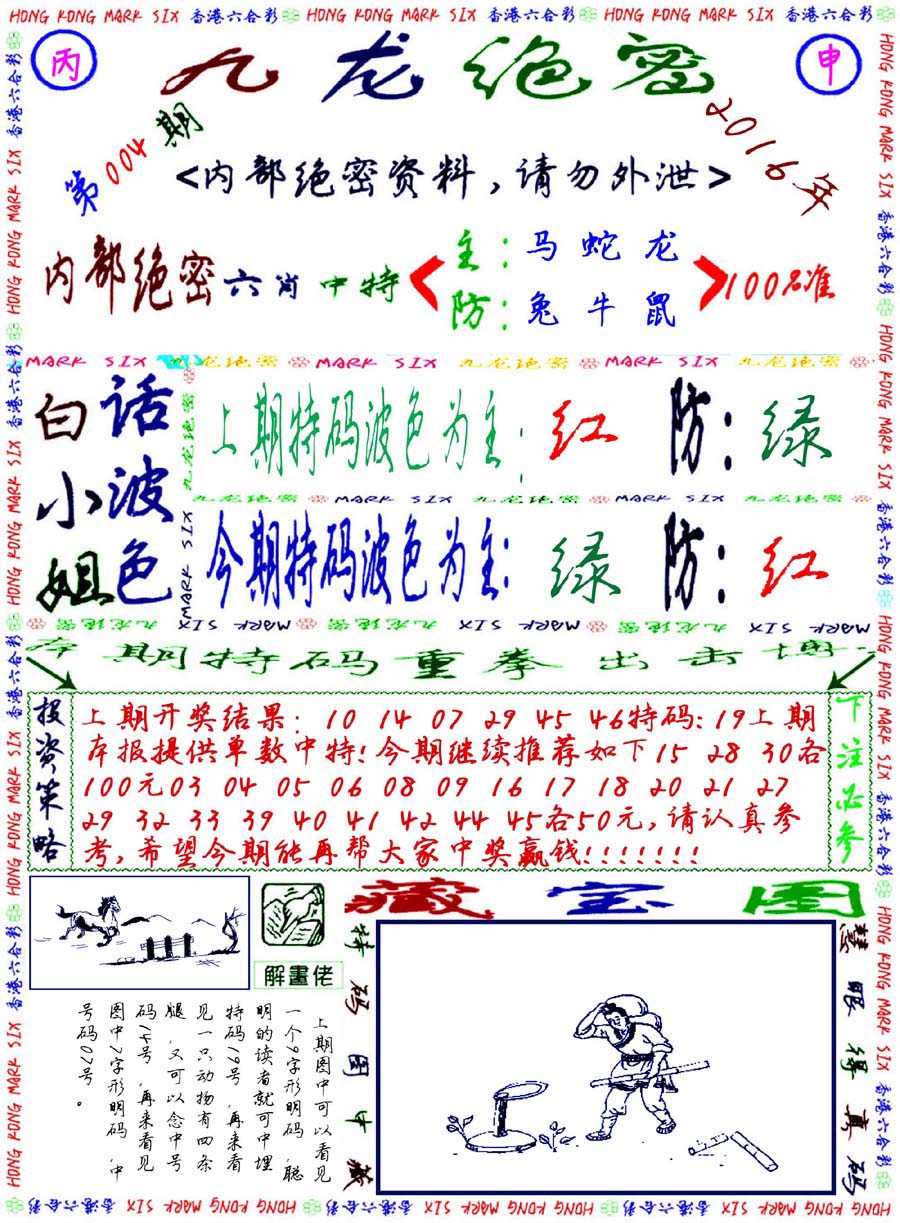 HONG KONG MARK SIX 香港六合彩 HONG KONG MARK SIX 香港六合彩 HONG KONG MARK SIX 香港六合彩
丙 九龙绝密 申
第004期 2016年
<内部绝密资料,请勿外泄>
内部绝密六肖中特
主:马蛇龙
防:兔牛鼠
100%准
MARK SIX 九龙绝密 MARK SIX 九龙绝密 MARK SIX 九龙绝密
白话小波姐色
上期特码波色为主:红 防:绿
九龙绝密 MARK SIX 九龙绝密 MARK SIX 九龙绝密
今期特码波色为主:绿 防:红
九龙绝密 MARK SIX 九龙绝密 MARK SIX 九龙绝密 MARK SIX
本期特码重拳出击博
投资策略
上期开奖结果: 10 14 07 29 45 46特码:19上期
本报提供单数中特!今期继续推荐如下15 28 30各
100元03 04 05 06 08 09 16 17 18 20 21 27
29 32 33 39 40 41 42 44 45各50元,请认真参
考,希望今期能再帮大家中奖赢钱!!!!!!!
下注必参
解畫佬
藏宝图
上期图中可以看见
一个9字形明码,聪
明的读者就可中埋
特码19号,再来看
见一只动物有四条
腿,又可以念中号
码14号,再来看见
图中7字形明码,中
号码07号。
特码图中藏
慧眼得真码
HONG KONG MARK SIX 香港六合彩 HONG KONG MARK SIX 香港六合彩 HONG KONG MARK SIX 香港六合彩